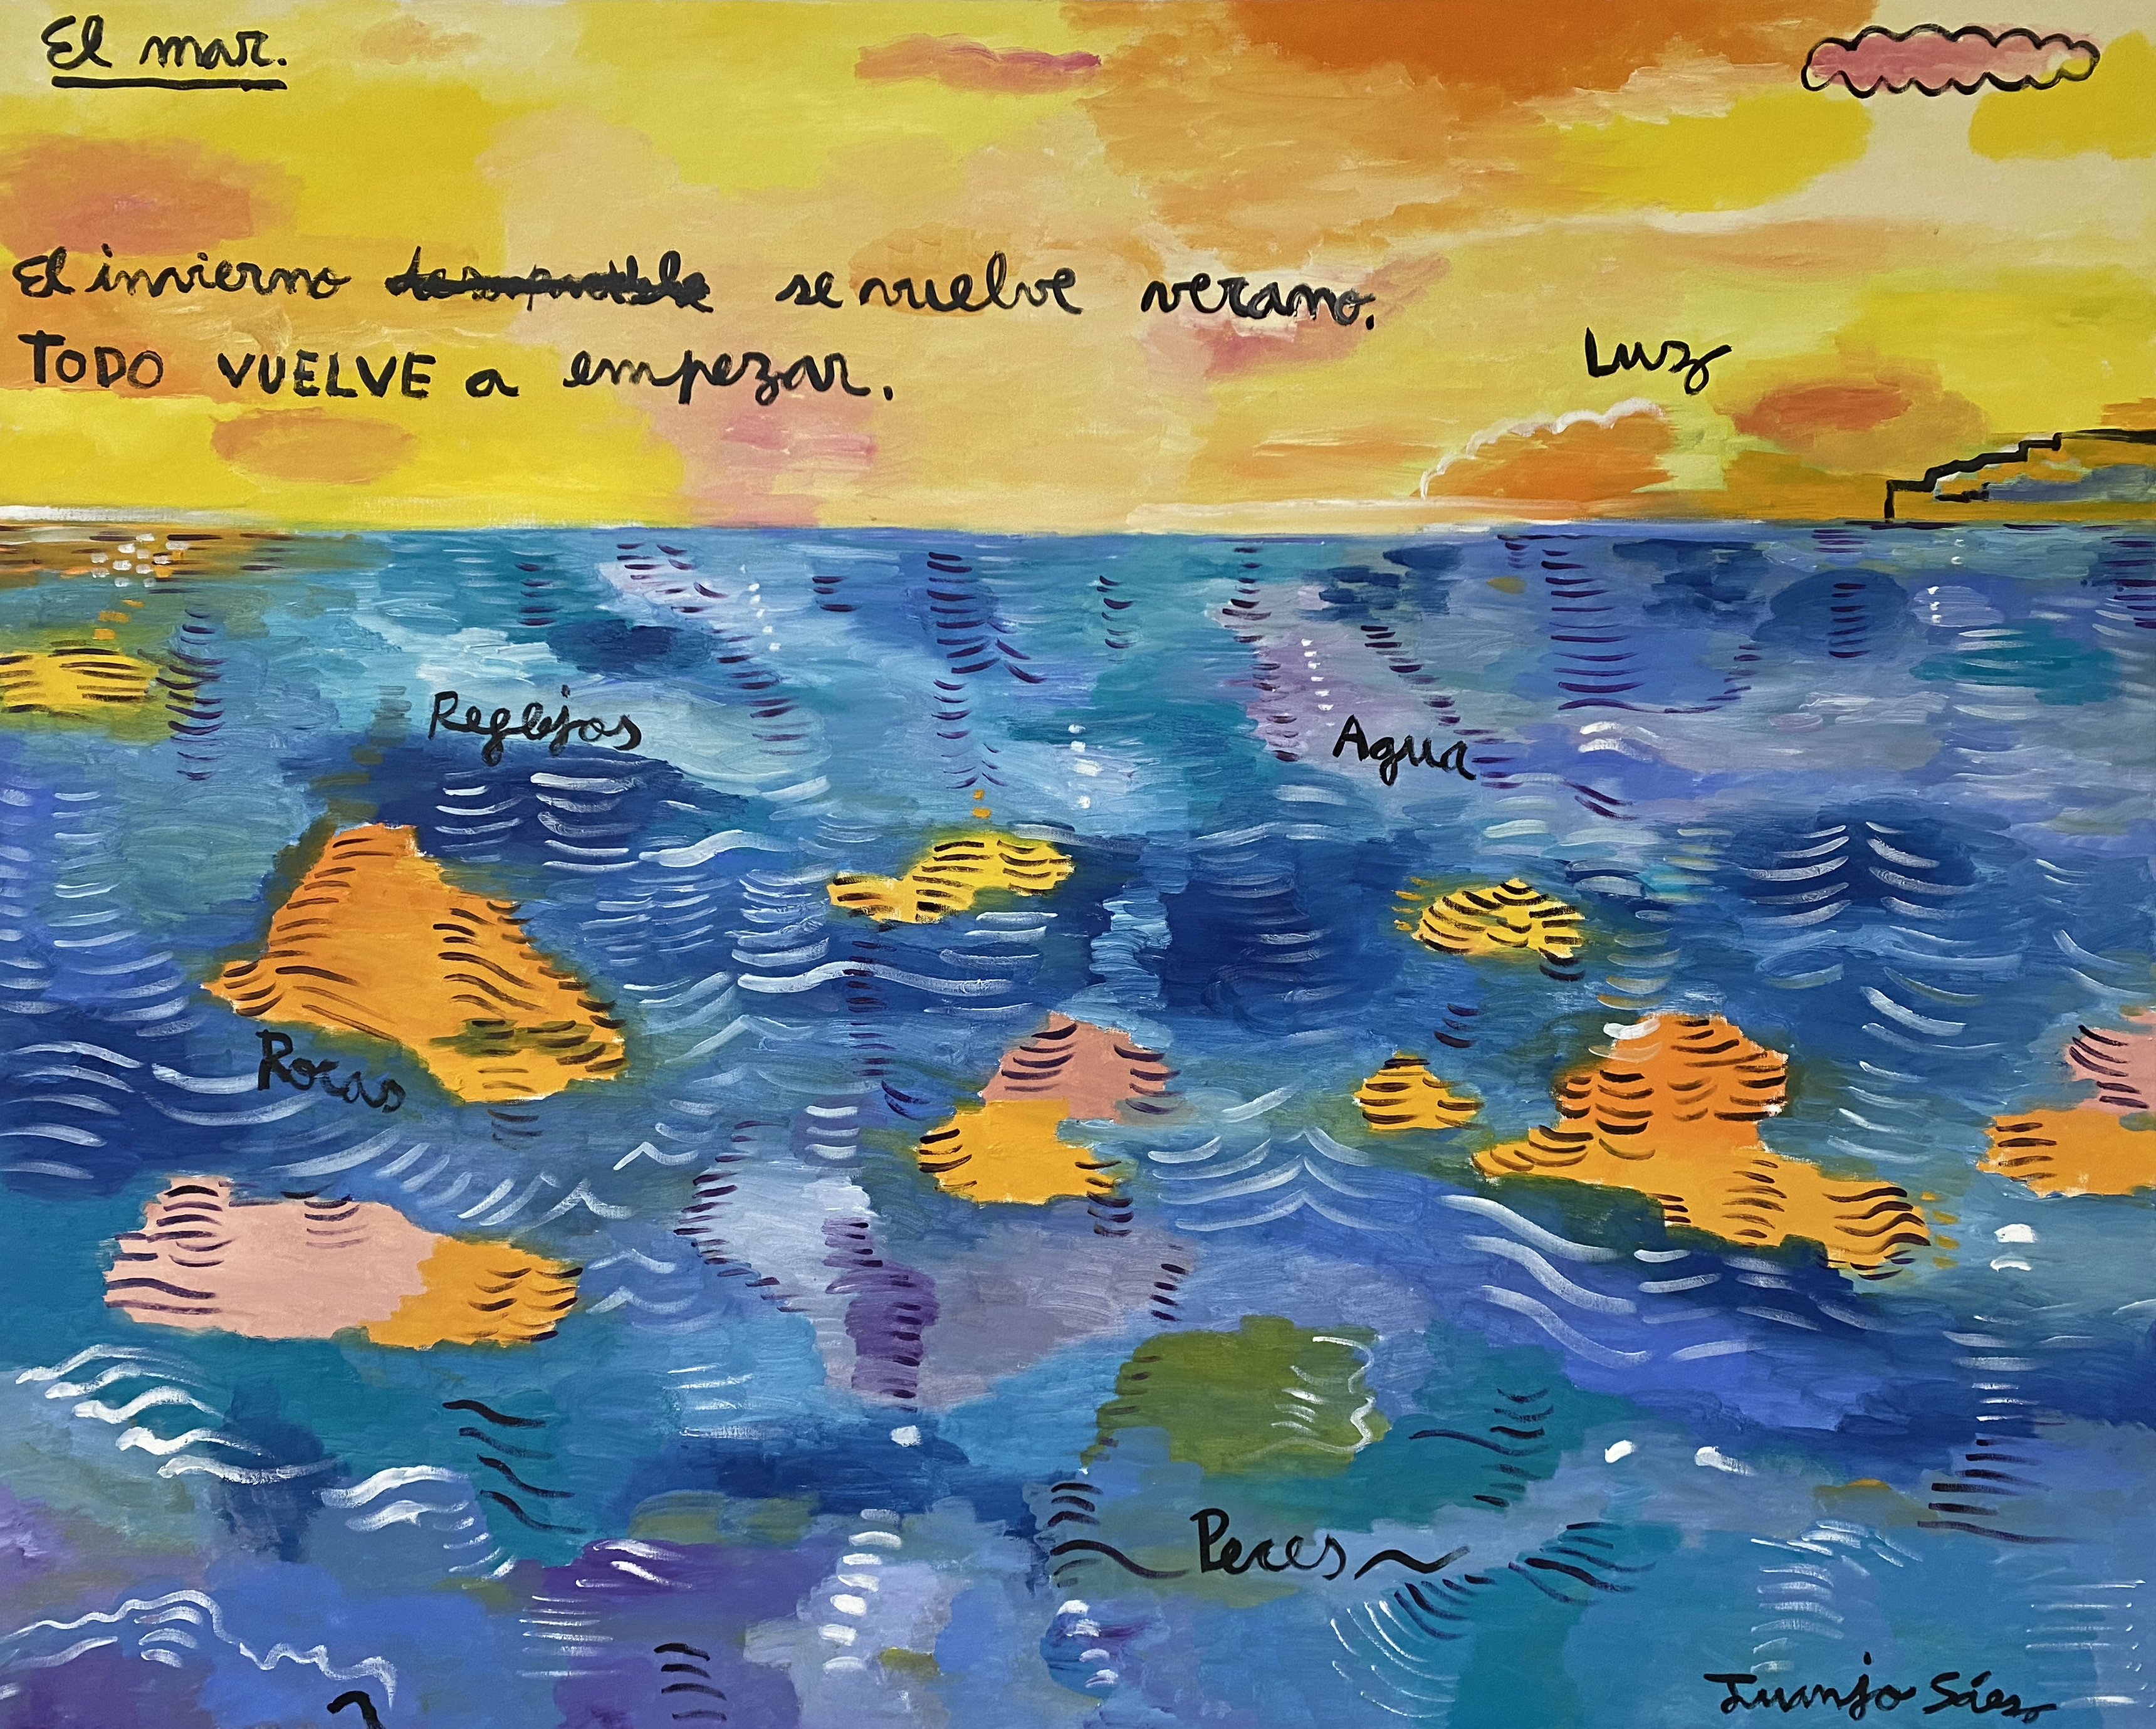 El mar.
El invierno se vuelve verano.
TODO VUELVE a empezar.
Luz
Reflejos
Agua
Rocas
Peces
Juanjo Sáez